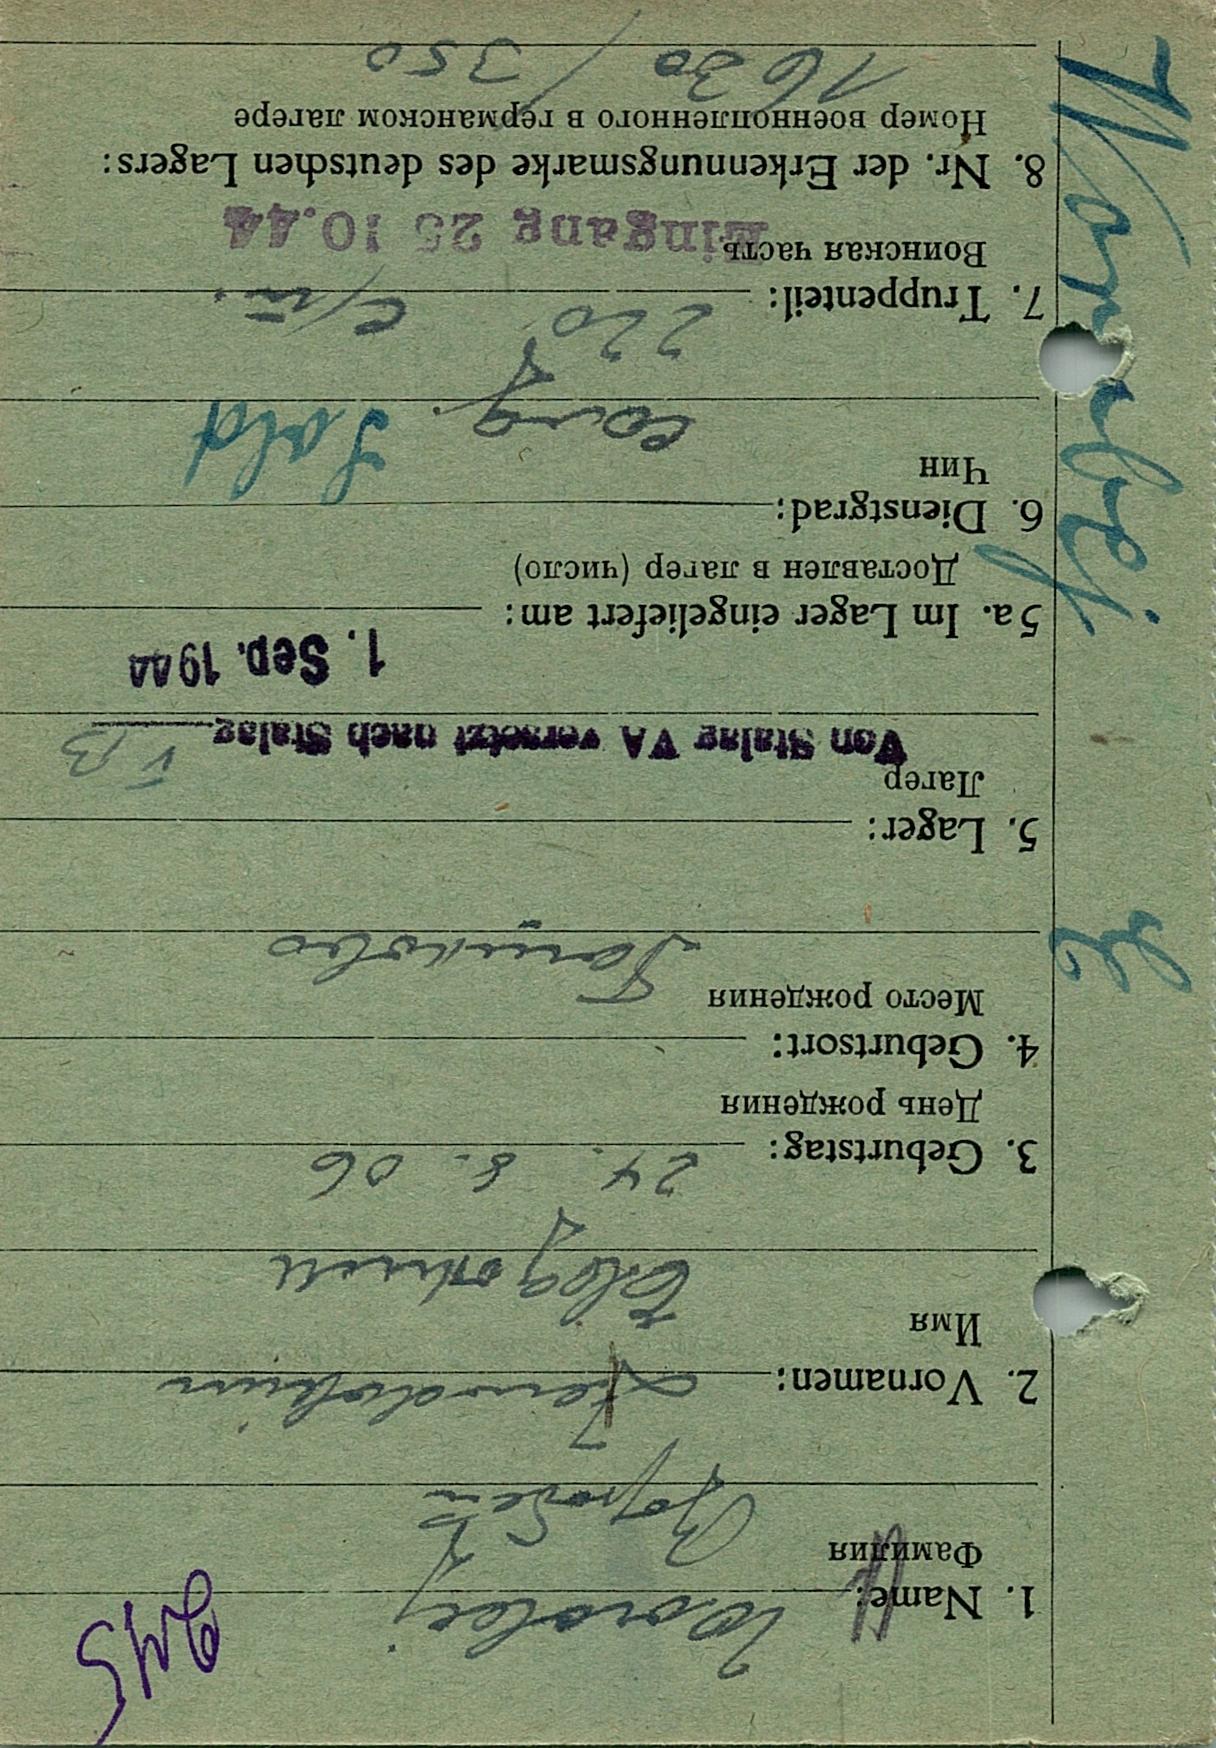 Worobej
1. Name: Worobej
Фамилия Воробей
2. Vornamen:
Имя
3. Geburtstag: 24. 8. 06
День рождения
4. Geburtsort:
Место рождения
5. Lager:
Лагер
Von Stalag VA versetzt nach Stalag V B
1. Sep. 1944
5a. Im Lager eingeliefert am:
Доставлен в лагер (число)
6. Dienstgrad:
Чин
Sold
7. Truppenteil: 220
Воинская часть
Eingang 25 10.44
8. Nr. der Erkennungsmarke des deutschen Lagers:
Номер военнопленного в германском лагере
1630 / 350